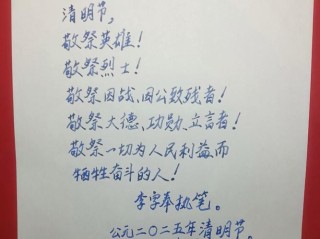 清明节，
敬祭英雄！
敬祭烈士！
敬祭因战、因公致残者！
敬祭大德、功勋、立言者！
敬祭一切为人民利益而
牺牲奋斗的人！
李字奉执笔。
公元二〇二五年清明节。